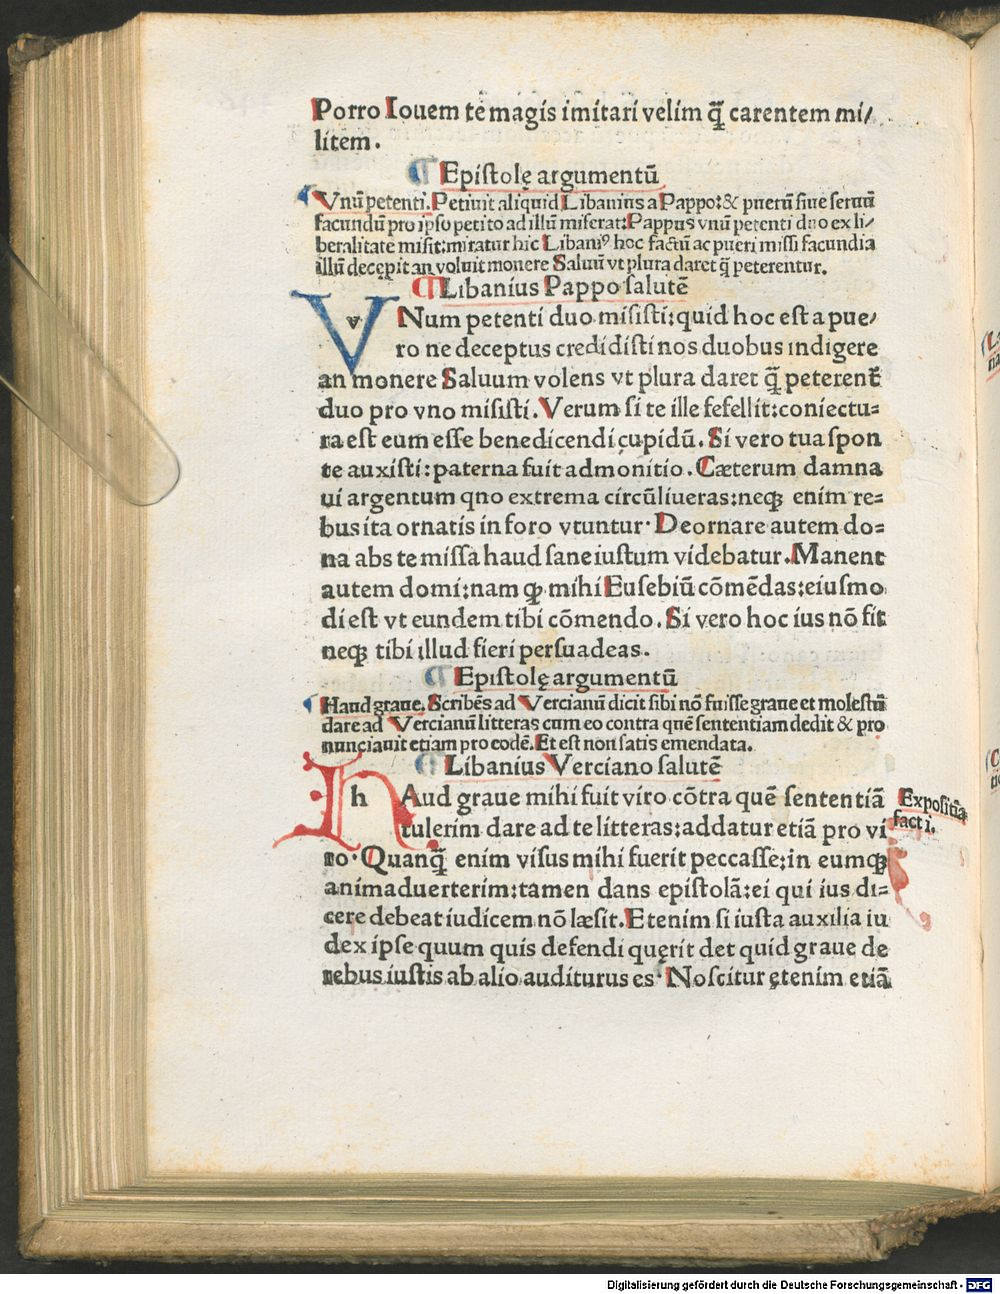 Porro Iouem te magis imitari velim q̃ carentem mi/
litem.
¶ Epiſtolę argumentũ
Vnũ petenti. Petiuit aliquid Libanius a Pappo: & puerũ ſiue ſeruũ
facundũ pro ipſo petito ad illũ miſerat: Pappus vnũ petenti duo ex li/
beralitate miſit: miratur hic Libaniꝰ hoc factũ ac pueri miſſi facundia
illũ decępit an voluit monere Saluũ vt plura daret q̃ peterentur.
¶ Libanius Pappo ſalutẽ
VNum petenti duo miſiſti: quid hoc eſt a pue/
ro ne deceptus credidiſti nos duobus indigere
an monere Saluum volens vt plura daret q̃ peterent̃
duo pro vno miſiſti. Verum ſi te ille fefellit: coniectu=
ra eſt eum eſſe benedicendi cupidũ. Si vero tua ſpon
te auxiſti: paterna fuit admonitio. Cæterum damna
ui argentum qno extrema circũliueras: neqꝫ enim re=
bus ita ornatis in foro vtuntur. Deornare autem do=
na abs te miſſa haud ſane iuſtum videbatur. Manent
autem domi: nam qꝙ mihi Euſebiũ cõmẽdas: eiuſmo
di eſt vt eundem tibi cõmendo. Si vero hoc ius nõ fit
neqꝫ tibi illud fieri perſuadeas.
¶ Epiſtolę argumentũ
Haud graue. Scribẽs ad Vercianũ dicit ſibi nõ fuiſſe graue et moleſtũ
dare ad Vercianũ litteras cum eo contra quẽ ſententiam dedit & pro
nunciauit etiam pro eodẽ. Et eſt non ſatis emendata.
¶ Libanius Verciano ſalutẽ
hAud graue mihi fuit viro cõtra quẽ ſententiã
tulerim dare ad te litteras: addatur etiã pro vi
ro. Quanq̃ enim viſus mihi fuerit peccaſſe: in eumqꝫ
animaduerterim: tamen dans epiſtolã: ei qui ius di=
cere debeat iudicem nõ læſit. Etenim ſi iuſta auxilia iu
dex ipſe quum quis defendi quęrit det quid graue de
rebus iuſtis ab alio auditurus es. Noſcitur ętenim etiã
Expoſitia
facti.
Digitalisierung gefördert durch die Deutsche Forschungsgemeinschaft - DFG